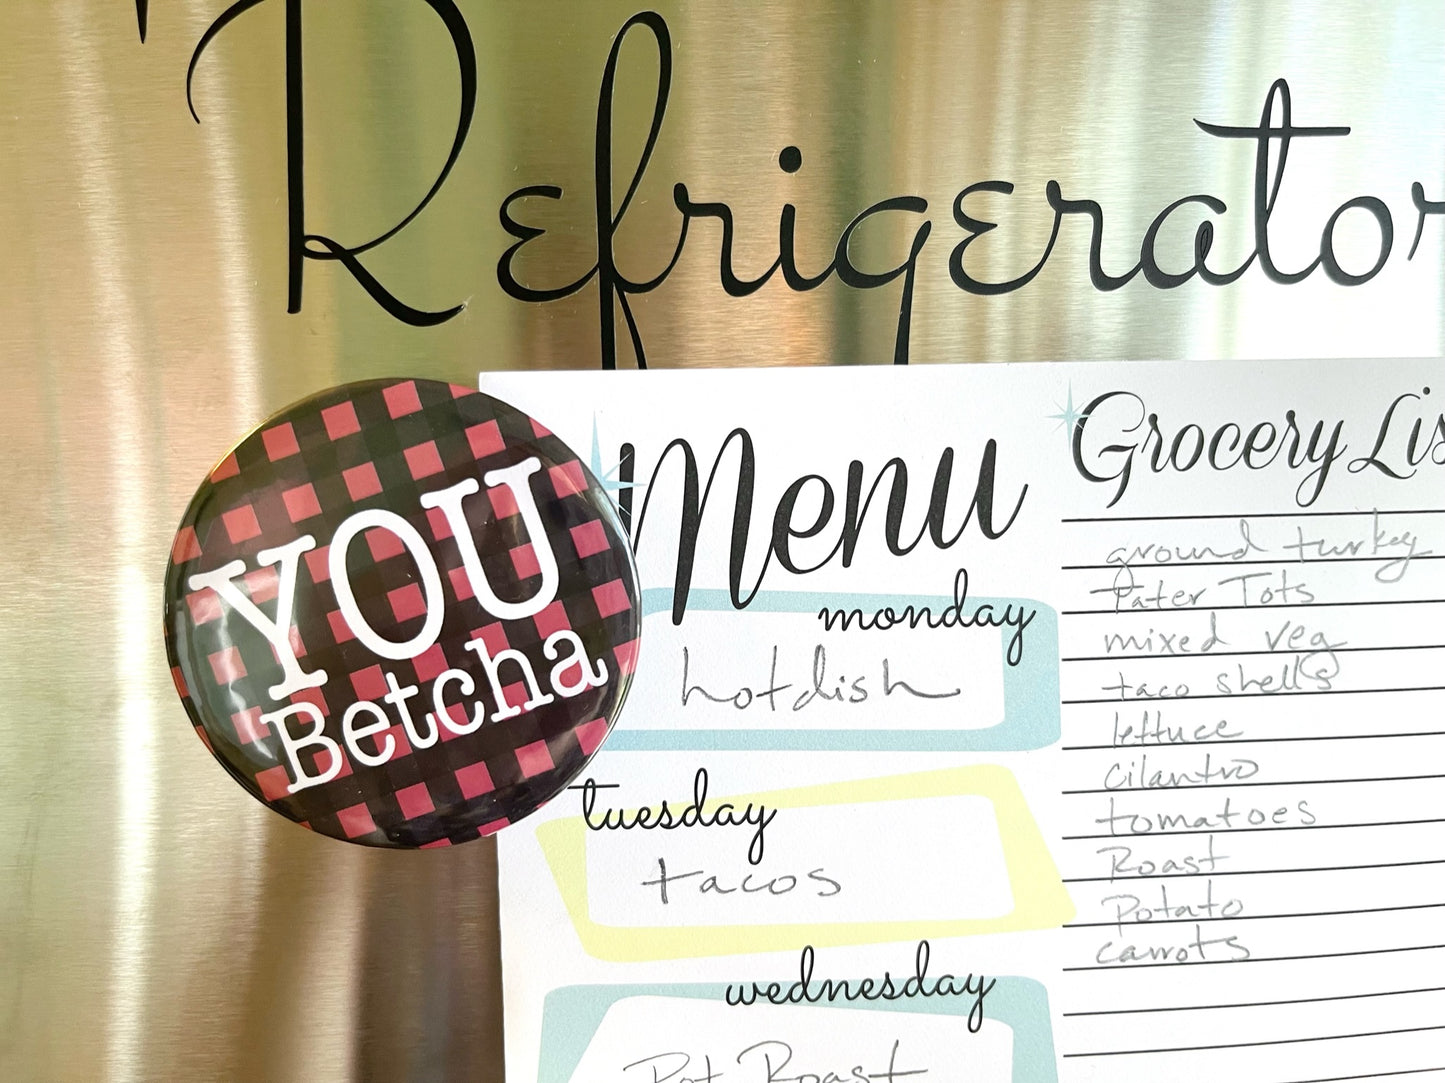 Refrigerator
YOU
Betcha
Menu
monday
hotdish
tuesday
tacos
wednesday
Pot Roast
Grocery Lis
ground turkey
Tater Tots
mixed veg
taco shells
lettuce
cilantro
tomatoes
Roast
Potato
carrots